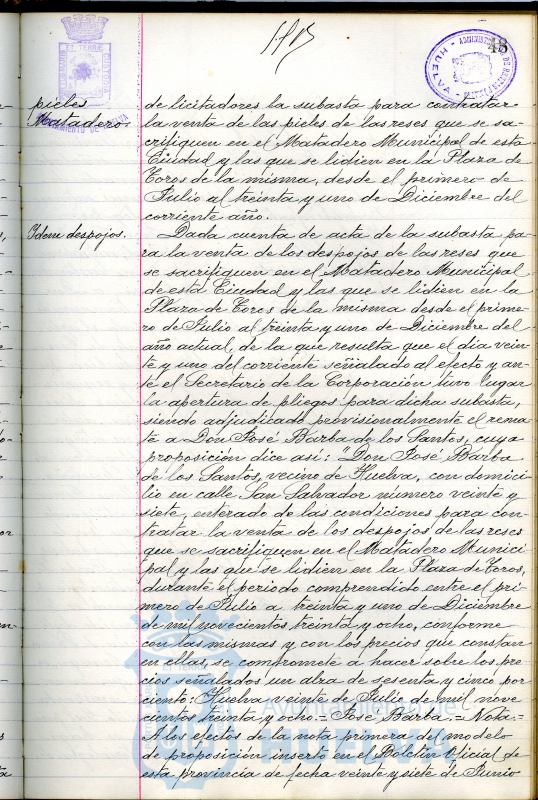 48
pieles
Matadero
de licitadores la subasta para contratar
la venta de las pieles de las reses que se sa-
crifiquen en el Matadero Municipal de esta
Ciudad y las que se lidien en la Plaza de
Toros de la misma, desde el primero de
Julio al treinta y uno de Diciembre del
corriente año.
Idem despojos.
Dada cuenta de acta de la subasta pa-
ra la venta de los despojos de las reses que
se sacrifiquen en el Matadero Municipal
de esta Ciudad y las que se lidien en la
Plaza de Toros de la misma desde el prime-
ro de Julio al treinta y uno de Diciembre del
año actual, de la que resulta que el dia vein-
te y uno del corriente señalado al efecto y an-
te el Secretario de la Corporación tuvo lugar
la apertura de pliegos para dicha subasta,
siendo adjudicado provisionalmente el rema-
te a Don José Barba de los Santos, cuya
proposición dice asi: "Don José Barba
de los Santos, vecino de Huelva, con domici-
lio en calle San Salvador numero veinte y
siete, enterado de las condiciones para con-
tratar la venta de los despojos de las reses
que se sacrifiquen en el Matadero Munici-
pal y las que se lidien en la Plaza de Toros,
durante el periodo comprendido entre el pri-
mero de Julio a treinta y uno de Diciembre
de mil novecientos treinta y ocho, conforme
con las mismas y con los precios que constan
en ellas, se compromete a hacer sobre los pre-
cios señalados un alza de sesenta y cinco por
ciento: Huelva veinte de Julio de mil nove-
cientos treinta y ocho = José Barba = Nota =
A los efectos de la nota primera del modelo
de proposición inserto en el Boletin Oficial de
esta provincia de fecha veinte y siete de Junio
Ayuntamiento de
HUELVA